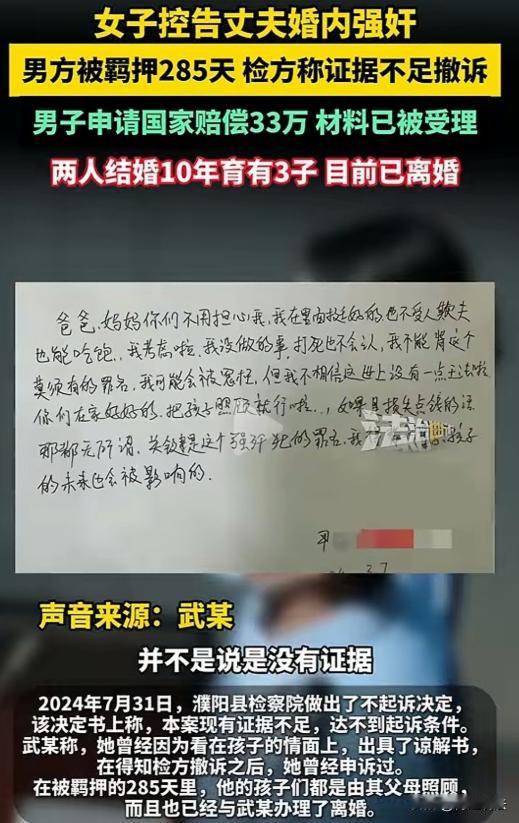 女子控告丈夫婚内强奸
男方被羁押285天 检方称证据不足撤诉
男子申请国家赔偿33万 材料已被受理
两人结婚10年育有3子 目前已离婚
爸爸、妈妈你们不用担心我,我在里面挺好的也不受人欺夫
也能吃饱,我考虑啦,我没做的事,打死也不会认,我不能背这个
莫须有的罪名,我可能会被冤枉,但我不相信这世上没有一点王法啦
你们在家好好的,把孩子照顾就行啦..,如果是损失点钱的话
那都无所谓,关键是这个强奸犯的罪名,我 孩子
的未来也会被影响的.
法治
声音来源:武某
并不是说是没有证据
2024年7月31日,濮阳县检察院做出了不起诉决定,
该决定书上称,本案现有证据不足,达不到起诉条件。
武某称,她曾经因为看在孩子的情面上,出具了谅解书,
在得知检方撤诉之后,她曾经申诉过。
在被羁押的285天里,他的孩子们都是由其父母照顾,
而且也已经与武某办理了离婚。